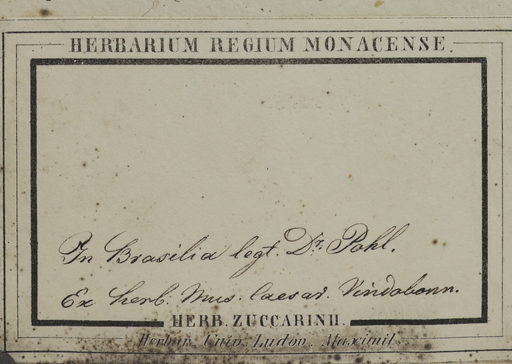 HERBARIUM REGIUM MONACENSE.
In Brasilia legt. Dr. Pohl.
Ex herb. Mus. Caesar. Vindobonn.
HERB. ZUCCARINII
Herbar. Univ. Ludov. Maximil.